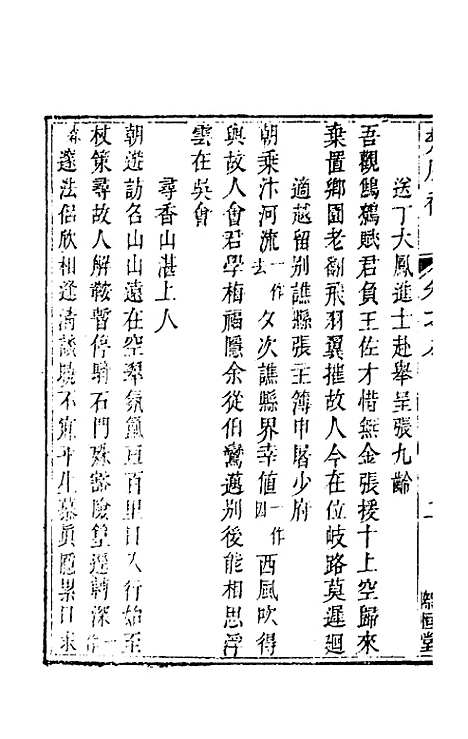 送丁大鳳進士赴舉呈張九齡
吾觀鷦鷯賦君負王佐才惜無金張援十上空歸來
棄置鄉園老翻飛羽翼摧故人今在位岐路莫遲迴
適越留別譙縣張主簿申屠少府
朝乘汴河流一作去夕次譙縣界幸值一作因西風吹得
與故人會君學梅福隱余從伯鸞邁別後能相思浮
雲在吳會
尋香山湛上人
朝遊訪名山山遠在空翠氛氳亙百里日入行始至
杖策尋故人解鞍暫停騎石門殊豁險篁逕轉深
邃法侶欣相逢清談曉不寐平生慕真隱累日求